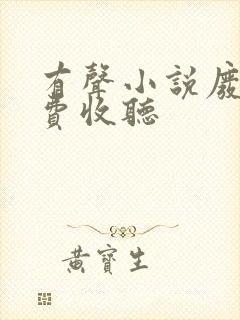 有聲小說廢
費收聽
黃寶生